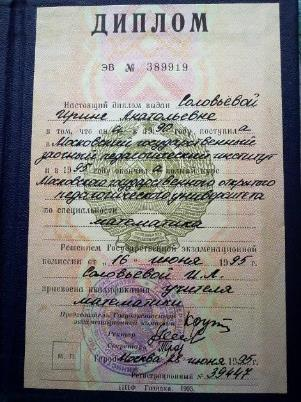 ДИПЛОМ
ЭВ № 389919
Настоящий диплом выдан Соловьёвой
Ирине Анатольевне
в том, что она в 1990 году поступила
в Московский государственный
заочный педагогический институт
и в 1995 году окончила полный курс
Московского государственного открытого
педагогического университета
по специальности
математика
Решением Государственной экзаменационной
комиссии от "16" июня 1995 г.
Соловьёвой И.А.
присвоена квалификация учителя
математики
Председатель Государственной
экзаменационной комиссии
Ректор
Секретарь
М. П.
Город Москва 28 июня 1995 г.
Регистрационный № 39447
ППФ Гознака. 1993.